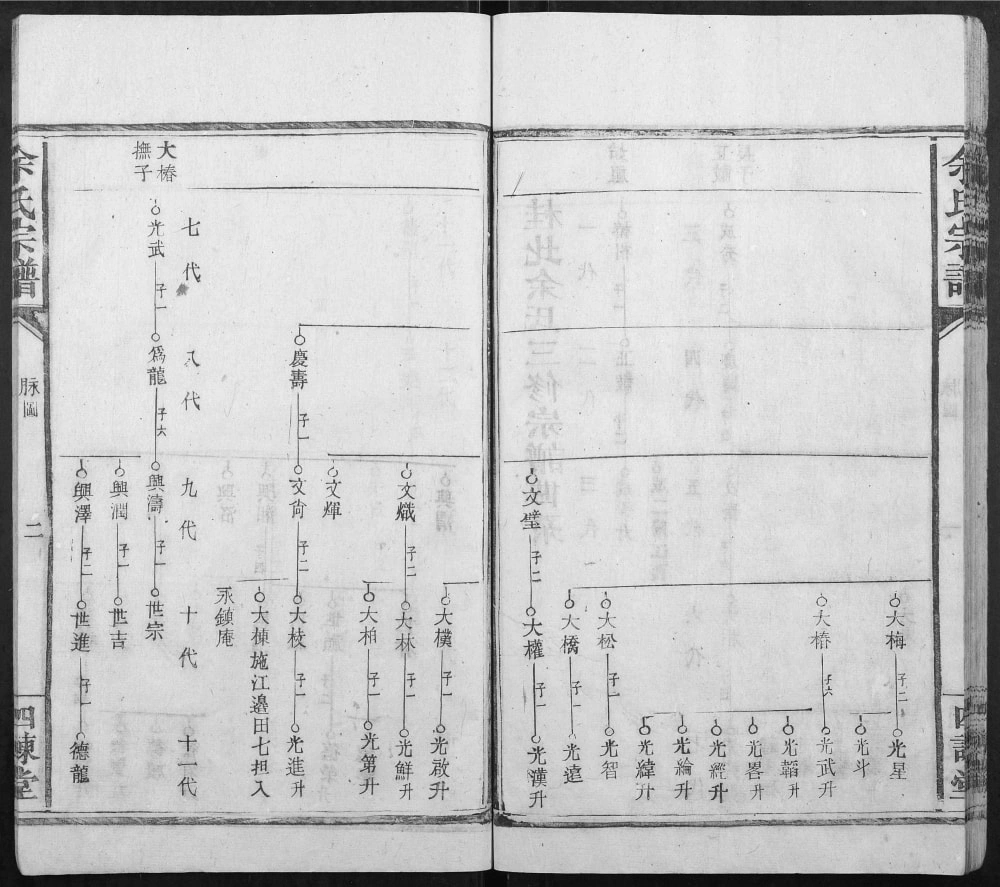 余氏宗譜
四諫堂
大梅
子二
光星
光斗
大椿
子六
光武升
光韜升
光畧升
光經升
光綸升
光緯升
大松
子一
光智
大橋
子一
光遠
文璧
子二
大權
子一
光漢升
大樸
子一
光啟升
文熾
子二
大林
子一
光鮮升
大柏
子一
光第升
文煇
慶壽
子一
文尙
子二
大枝
子一
光進升
大棟施江邉田七担入
永鎮庵
七代
八代
九代
十代
十一代
大椿
撫子
光武
子一
爲龍
子六
興濤
子一
世宗
興潤
子一
世吉
興澤
子二
世進
子一
德龍
余氏宗譜
脉圖
二
四諫堂